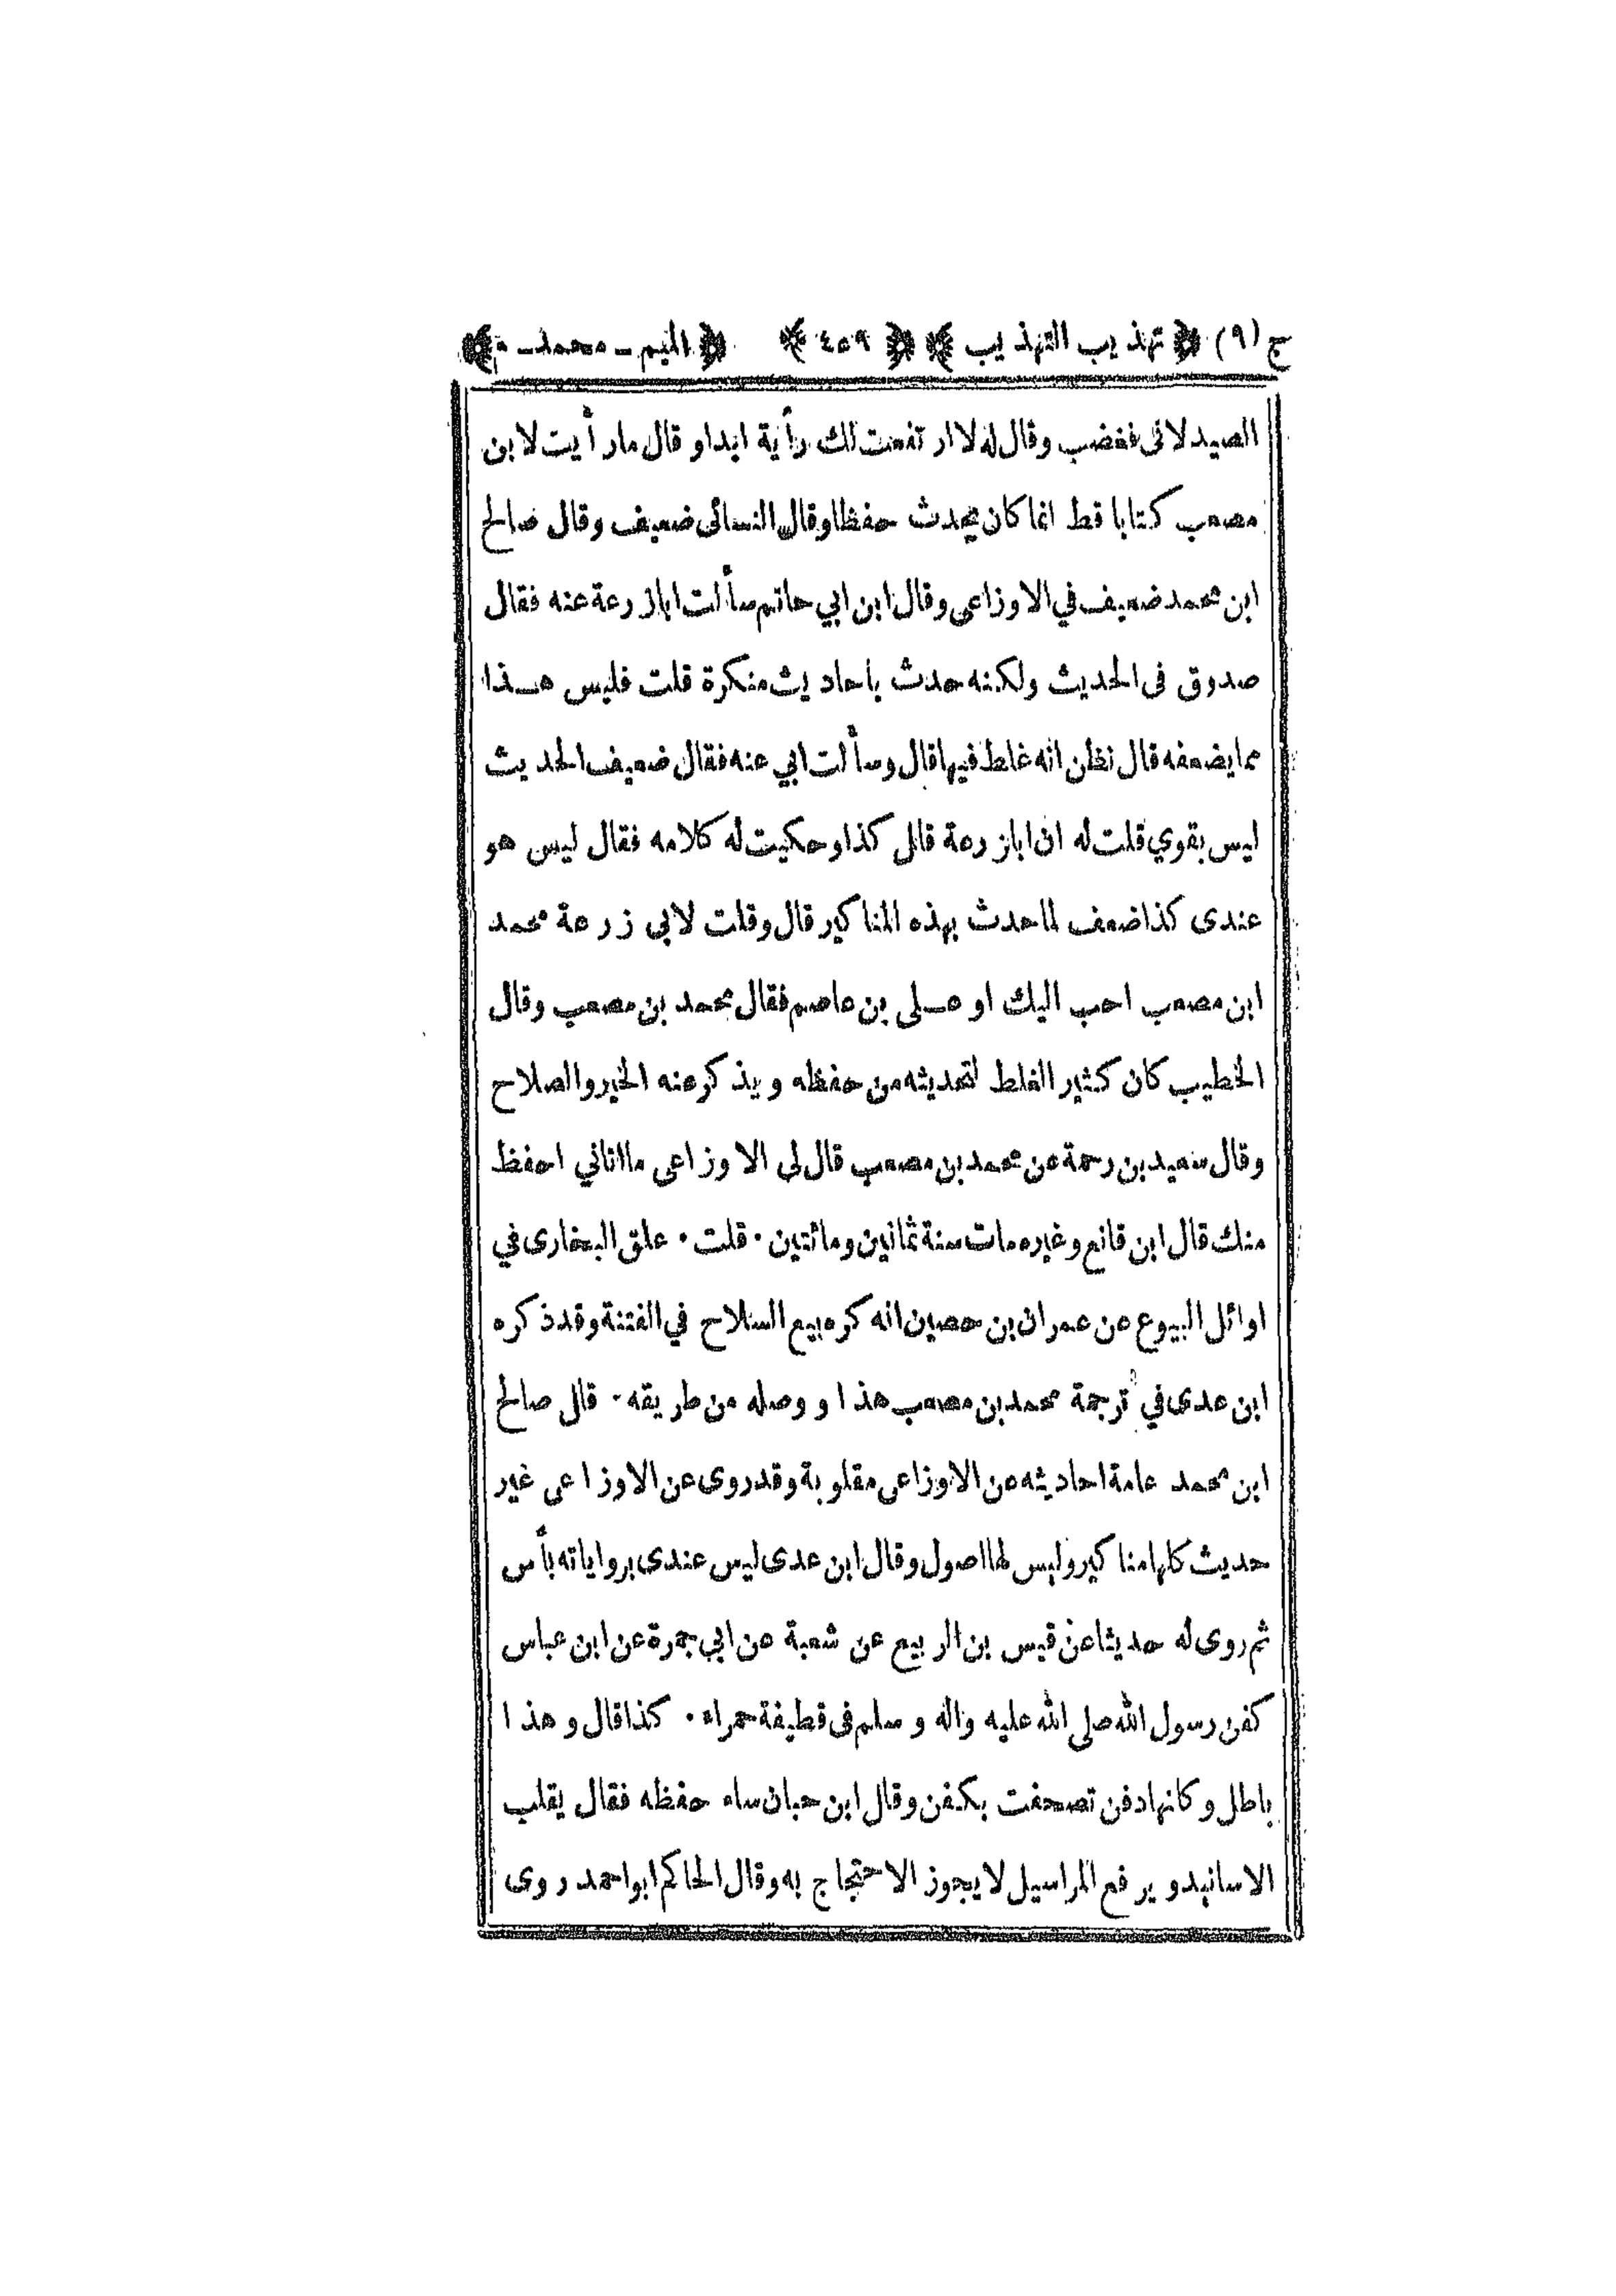 ج (٩) ﴿ تهذيب التهذيب ﴾ ﴿ ٤٥٩ ﴾ ﴿ الميم ـ محمد ـ م ﴾
الصيدلانى فغضب وقال له لا ارتفعت لك رأية ابدا وقال ما رأيت لابن
مصعب كتابا قط انما كان يحدث حفظا وقال النسائى ضعيف وقال صالح
ابن محمد ضعيف في الاوزاعى وقال ابن ابي حاتم سألت ابا زرعة عنه فقال
صدوق فى الحديث ولكنه حدث بأحاديث منكرة قلت فليس هذا
مما يضعفه قال نظن انه غلط فيها قال وسألت ابي عنه فقال ضعيف الحديث
ليس بقوي قلت له ان ابا زرعة قال كذا وحكيت له كلامه فقال ليس هو
عندى كذا ضعف لما حدث بهذه المناكير قال وقلت لابي زرعة محمد
ابن مصعب احب اليك او على بن عاصم فقال محمد بن مصعب وقال
الخطيب كان كثير الغلط لتحديثه من حفظه ويذكر عنه الخير والصلاح
وقال سعيد بن رحمة عن محمد بن مصعب قال لى الاوزاعى ما اتاني احفظ
منك قال ابن قانع وغيره مات سنة ثمانين ومائتين · قلت · علق البخارى في
اوائل البيوع عن عمران بن حصين انه كره بيع السلاح في الفتنة وقد ذكره
ابن عدى في ترجمة محمد بن مصعب هذا و وصله من طريقه · قال صالح
ابن محمد عامة احاديثه عن الاوزاعى مقلوبة وقد روى عن الاوزاعى غير
حديث كلها مناكير وليس لها اصول وقال ابن عدى ليس عندى برواياته بأس
ثم روى له حديثا عن قيس بن الربيع عن شعبة عن ابي جمرة عن ابن عباس
كفن رسول الله صلى الله عليه واله وسلم فى قطيفة حمراء · كذا قال وهذا
باطل وكانها دفن تصحفت بكفن وقال ابن حبان ساء حفظه فقال يقلب
الاسانيد ويرفع المراسيل لا يجوز الاحتجاج به وقال الحاكم ابو احمد روى